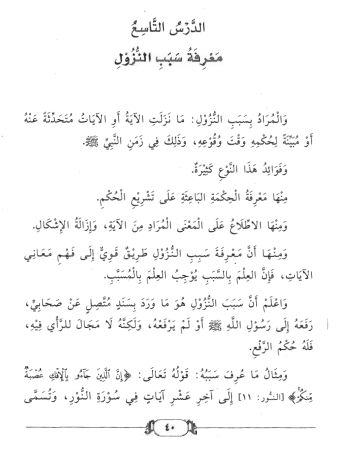 الدَّرْسُ التَّاسِعُ
مَعْرِفَةُ سَبَبِ النُّزُولِ
وَالْمُرَادُ بِسَبَبِ النُّزُولِ: مَا نَزَلَتِ الآيَةُ أَوِ الآيَاتُ مُتَحَدِّثَةً عَنْهُ
أَوْ مُبَيِّنَةً لِحُكْمِهِ وَقْتَ وُقُوعِهِ، وَذَلِكَ فِي زَمَنِ النَّبِيِّ ﷺ.
وَفَوَائِدُ هَذَا النَّوْعِ كَثِيرَةٌ.
مِنْهَا مَعْرِفَةُ الْحِكْمَةِ الْبَاعِثَةِ عَلَى تَشْرِيعِ الْحُكْمِ.
وَمِنْهَا الاطِّلَاعُ عَلَى الْمَعْنَى الْمُرَادِ مِنَ الآيَةِ، وَإِزَالَةُ الإِشْكَالِ.
وَمِنْهَا أَنَّ مَعْرِفَةَ سَبَبِ النُّزُولِ طَرِيقٌ قَوِيٌّ إِلَى فَهْمِ مَعَانِي
الآيَاتِ، فَإِنَّ الْعِلْمَ بِالسَّبَبِ يُوجِبُ الْعِلْمَ بِالْمُسَبَّبِ.
وَاعْلَمْ أَنَّ سَبَبَ النُّزُولِ هُوَ مَا وَرَدَ بِسَنَدٍ مُتَّصِلٍ عَنْ صَحَابِيٍّ،
رَفَعَهُ إِلَى رَسُولِ اللَّهِ ﷺ أَوْ لَمْ يَرْفَعْهُ، وَلَكِنَّهُ لَا مَجَالَ لِلرَّأْيِ فِيهِ،
فَلَهُ حُكْمُ الرَّفْعِ.
وَمِثَالُ مَا عُرِفَ سَبَبُهُ: قَوْلُهُ تَعَالَى: ﴿إِنَّ الَّذِينَ جَاءُو بِالْإِفْكِ عُصْبَةٌ
مِنْكُمْ﴾ [النُّور: ١١] إِلَى آخِرِ عَشْرِ آيَاتٍ فِي سُورَةِ النُّورِ، وَتُسَمَّى
٤٠